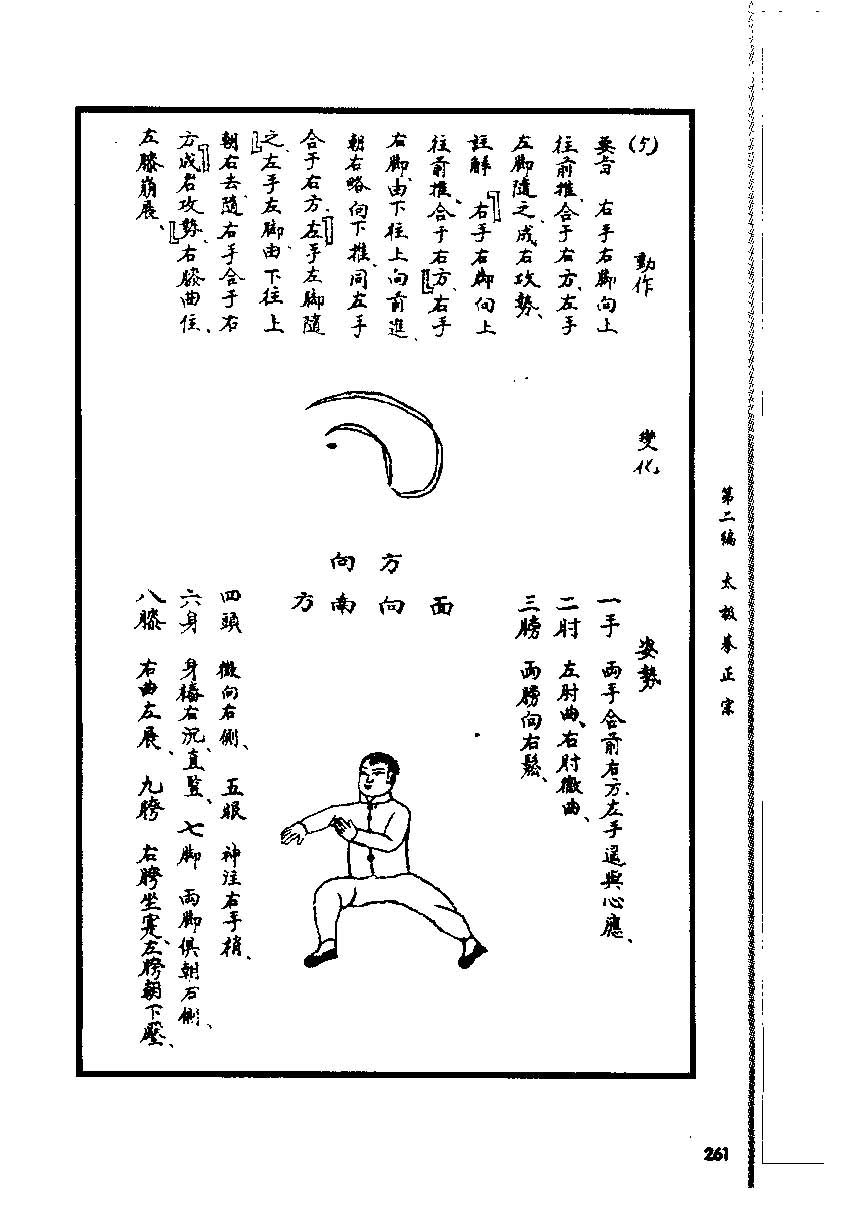 (5) 動作
要旨 右手右脚向上
往前推、合于右方、左手
左脚隨之、成右攻勢、
註解 「右手右脚向上
往前推、合于右方、」右手
右脚、由下往上向前進、
朝右略向下推、同左手
合于右方、「左手左脚隨
之、」左手左脚、由下往上
朝右去、隨右手合于右
方、「成右攻勢、」右膝曲住、
左膝崩展、
變化
方向
面向南方
姿勢
一手 兩手合前右方、左手遥與心應、
二肘 左肘曲、右肘微曲、
三膀 兩膀向右鬆、
四頭 微向右側、 五眼 神注右手梢、
六身 身樁右沉、直竪、 七脚 兩脚俱朝右側、
八膝 右曲左展、 九胯 右胯坐寔、左胯朝下壓、
第二編 太極拳正宗
261